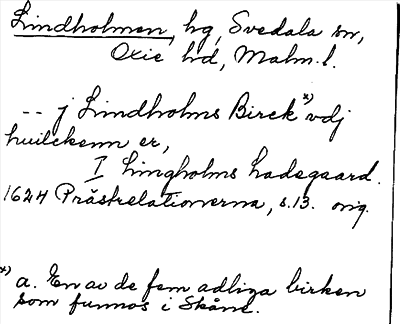 Lindholmen, hg, Svedala sn,
Oxie hd, Malm. l.
-- j Lindholms Birck *) vdj
huilckenn er,
I Lingholms Ladegaard.
1624 Prästrelationerna, s.13. orig.
*) a. En av de fem adliga birken
som funnos i Skåne.